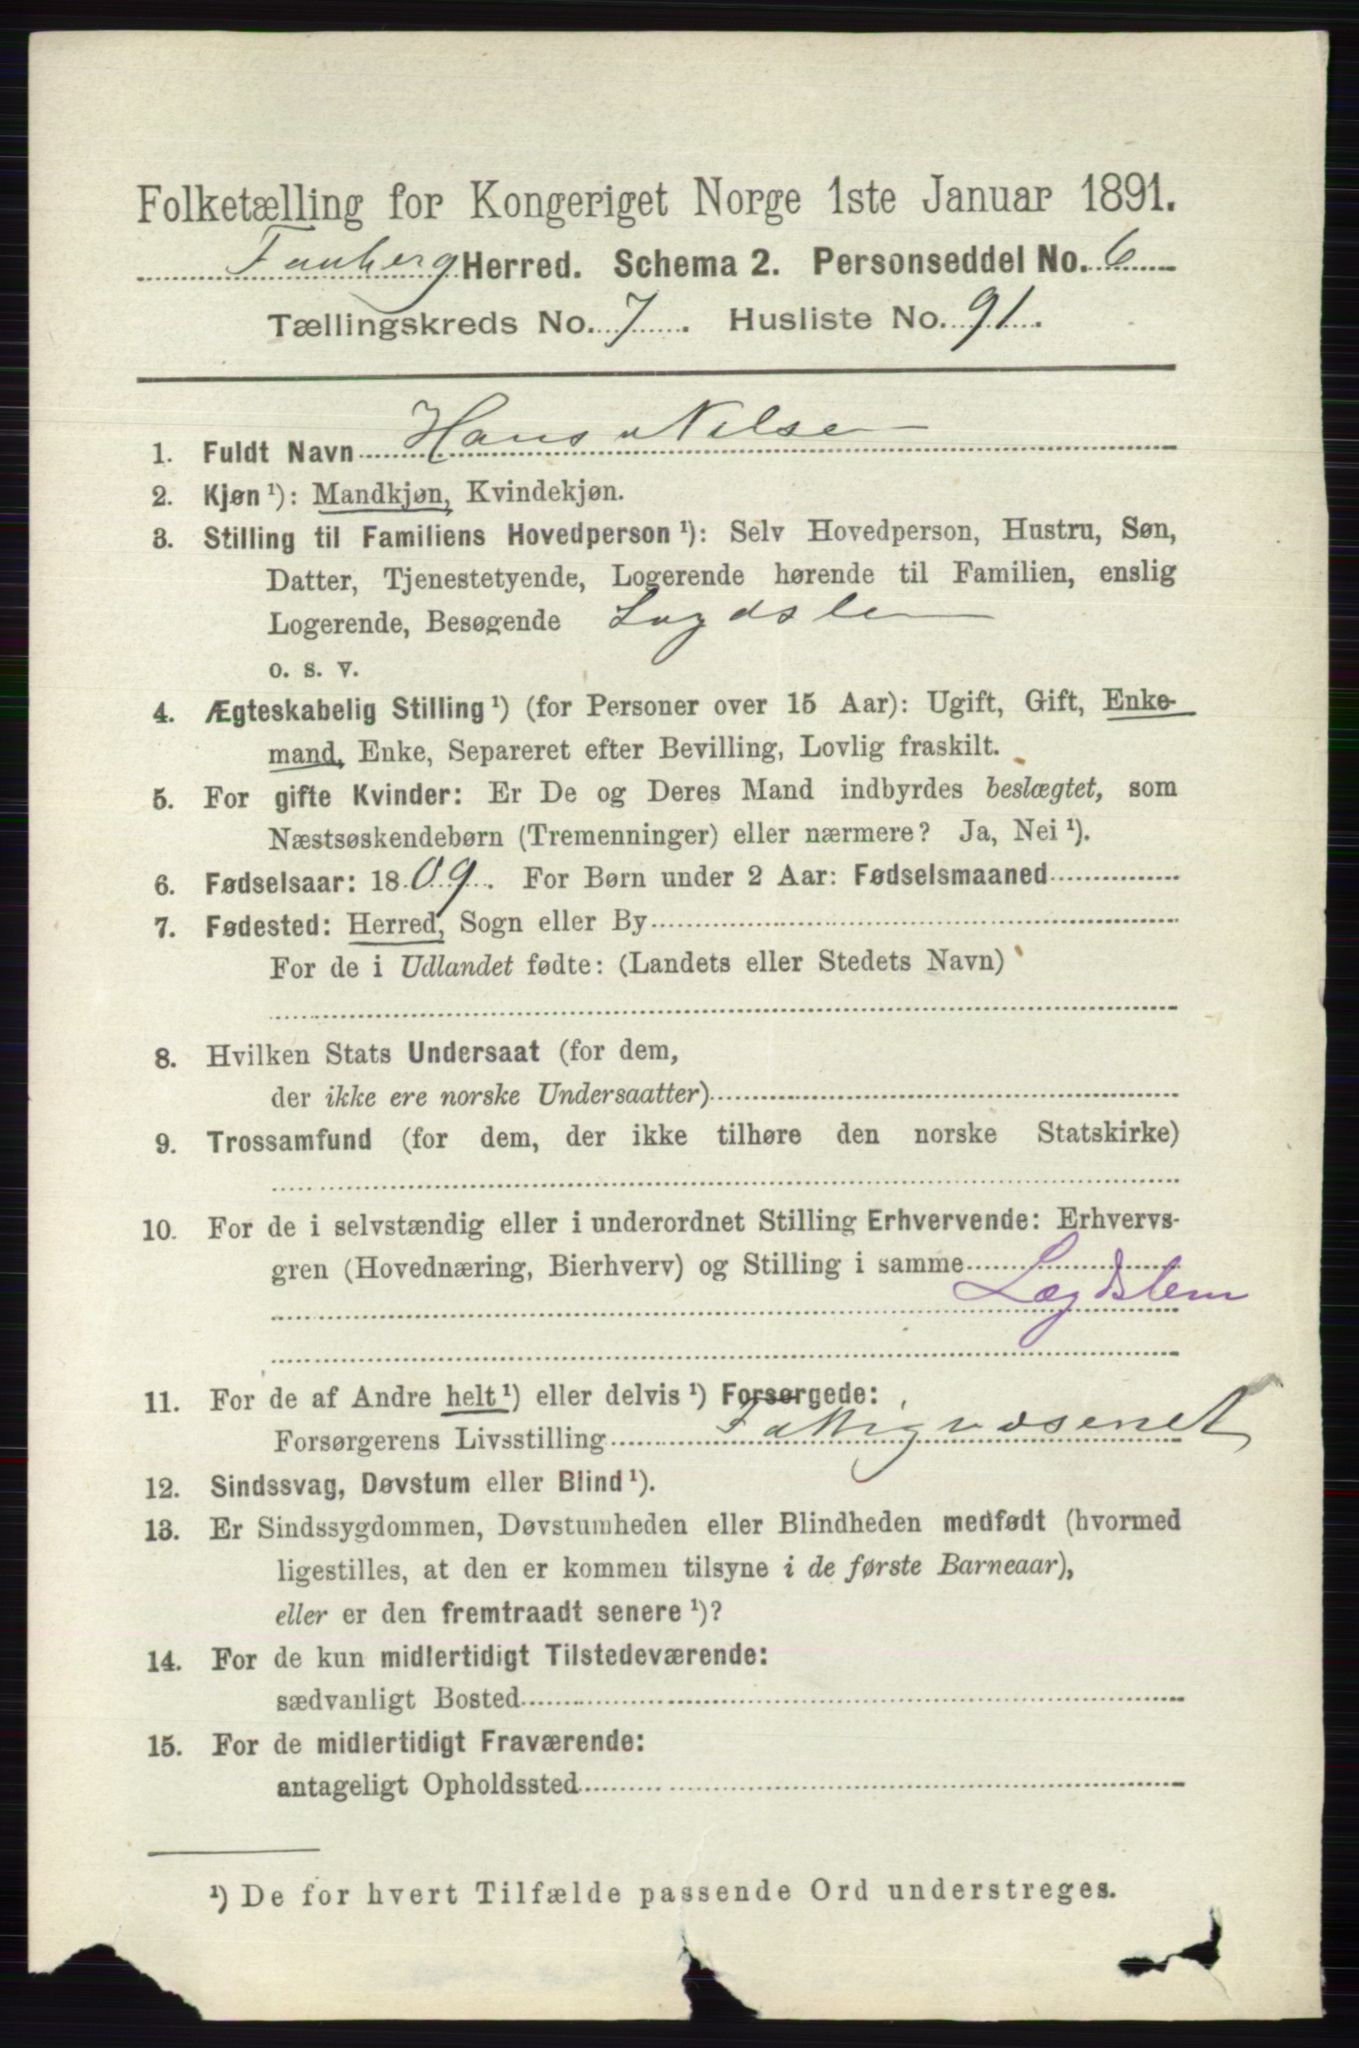 Folketælling for Kongeriget Norge 1ste Januar 1891.
Faaberg Herred. Schema 2. Personseddel No. 6
Tællingskreds No. 7. Husliste No. 91.
1. Fuldt Navn Hans Nilsen
2. Kjøn ¹): Mandkjøn, Kvindekjøn.
3. Stilling til Familiens Hovedperson ¹): Selv Hovedperson, Hustru, Søn,
Datter, Tjenestetyende, Logerende hørende til Familien, enslig
Logerende, Besøgende Lægdslem
o. s. v.
4. Ægteskabelig Stilling ¹) (for Personer over 15 Aar): Ugift, Gift, Enke-
mand, Enke, Separeret efter Bevilling, Lovlig fraskilt.
5. For gifte Kvinder: Er De og Deres Mand indbyrdes beslægtet, som
Næstsøskendebørn (Tremenninger) eller nærmere? Ja, Nei ¹).
6. Fødselsaar: 1809. For Børn under 2 Aar: Fødselsmaaned
7. Fødested: Herred, Sogn eller By
For de i Udlandet fødte: (Landets eller Stedets Navn)
8. Hvilken Stats Undersaat (for dem,
der ikke ere norske Undersaatter)
9. Trossamfund (for dem, der ikke tilhøre den norske Statskirke)
10. For de i selvstændig eller i underordnet Stilling Erhvervende: Erhvervs-
gren (Hovednæring, Bierhverv) og Stilling i samme
Lægdslem
11. For de af Andre helt ¹) eller delvis ¹) Forsørgede:
Forsørgerens Livsstilling Fattigvæsenet
12. Sindssvag, Døvstum eller Blind ¹).
13. Er Sindssygdommen, Døvstumheden eller Blindheden medfødt (hvormed
ligestilles, at den er kommen tilsyne i de første Barneaar),
eller er den fremtraadt senere ¹)?
14. For de kun midlertidigt Tilstedeværende:
sædvanligt Bosted
15. For de midlertidigt Fraværende:
antageligt Opholdssted
¹) De for hvert Tilfælde passende Ord understreges.